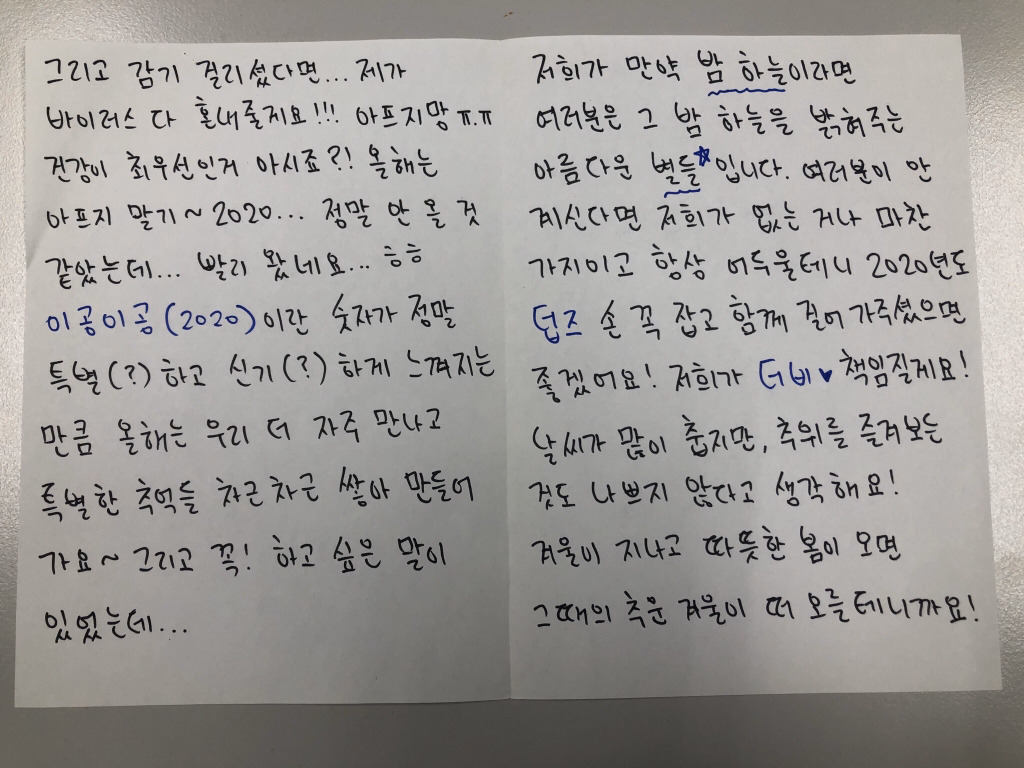 그리고 감기 걸리셨다면... 제가
바이러스 다 혼내줄지요!!! 아프지망 ㅠ.ㅠ
건강이 최우선인거 아시죠?! 올해는
아프지 말기~ 2020... 정말 안 올 것
같았는데... 빨리 왔네요... ㅎㅎ
이공이공(2020)이란 숫자가 정말
특별(?)하고 신기(?)하게 느껴지는
만큼 올해는 우리 더 자주 만나고
특별한 추억들 차근차근 쌓아 만들어
가요~ 그리고 꼭! 하고 싶은 말이
있었는데...
저희가 만약 밤 하늘이라면
여러분은 그 밤 하늘을 밝혀주는
아름다운 별들☆입니다. 여러분이 안
계신다면 저희가 없는 거나 마찬
가지이고 항상 어두울테니 2020년도
덥즈 손 꼭 잡고 함께 걸어가주셨으면
좋겠어요! 저희가 더비♥ 책임질게요!
날씨가 많이 춥지만, 추위를 즐겨보는
것도 나쁘지 않다고 생각해요!
겨울이 지나고 따뜻한 봄이 오면
그때의 추운 겨울이 떠 오를테니까요!